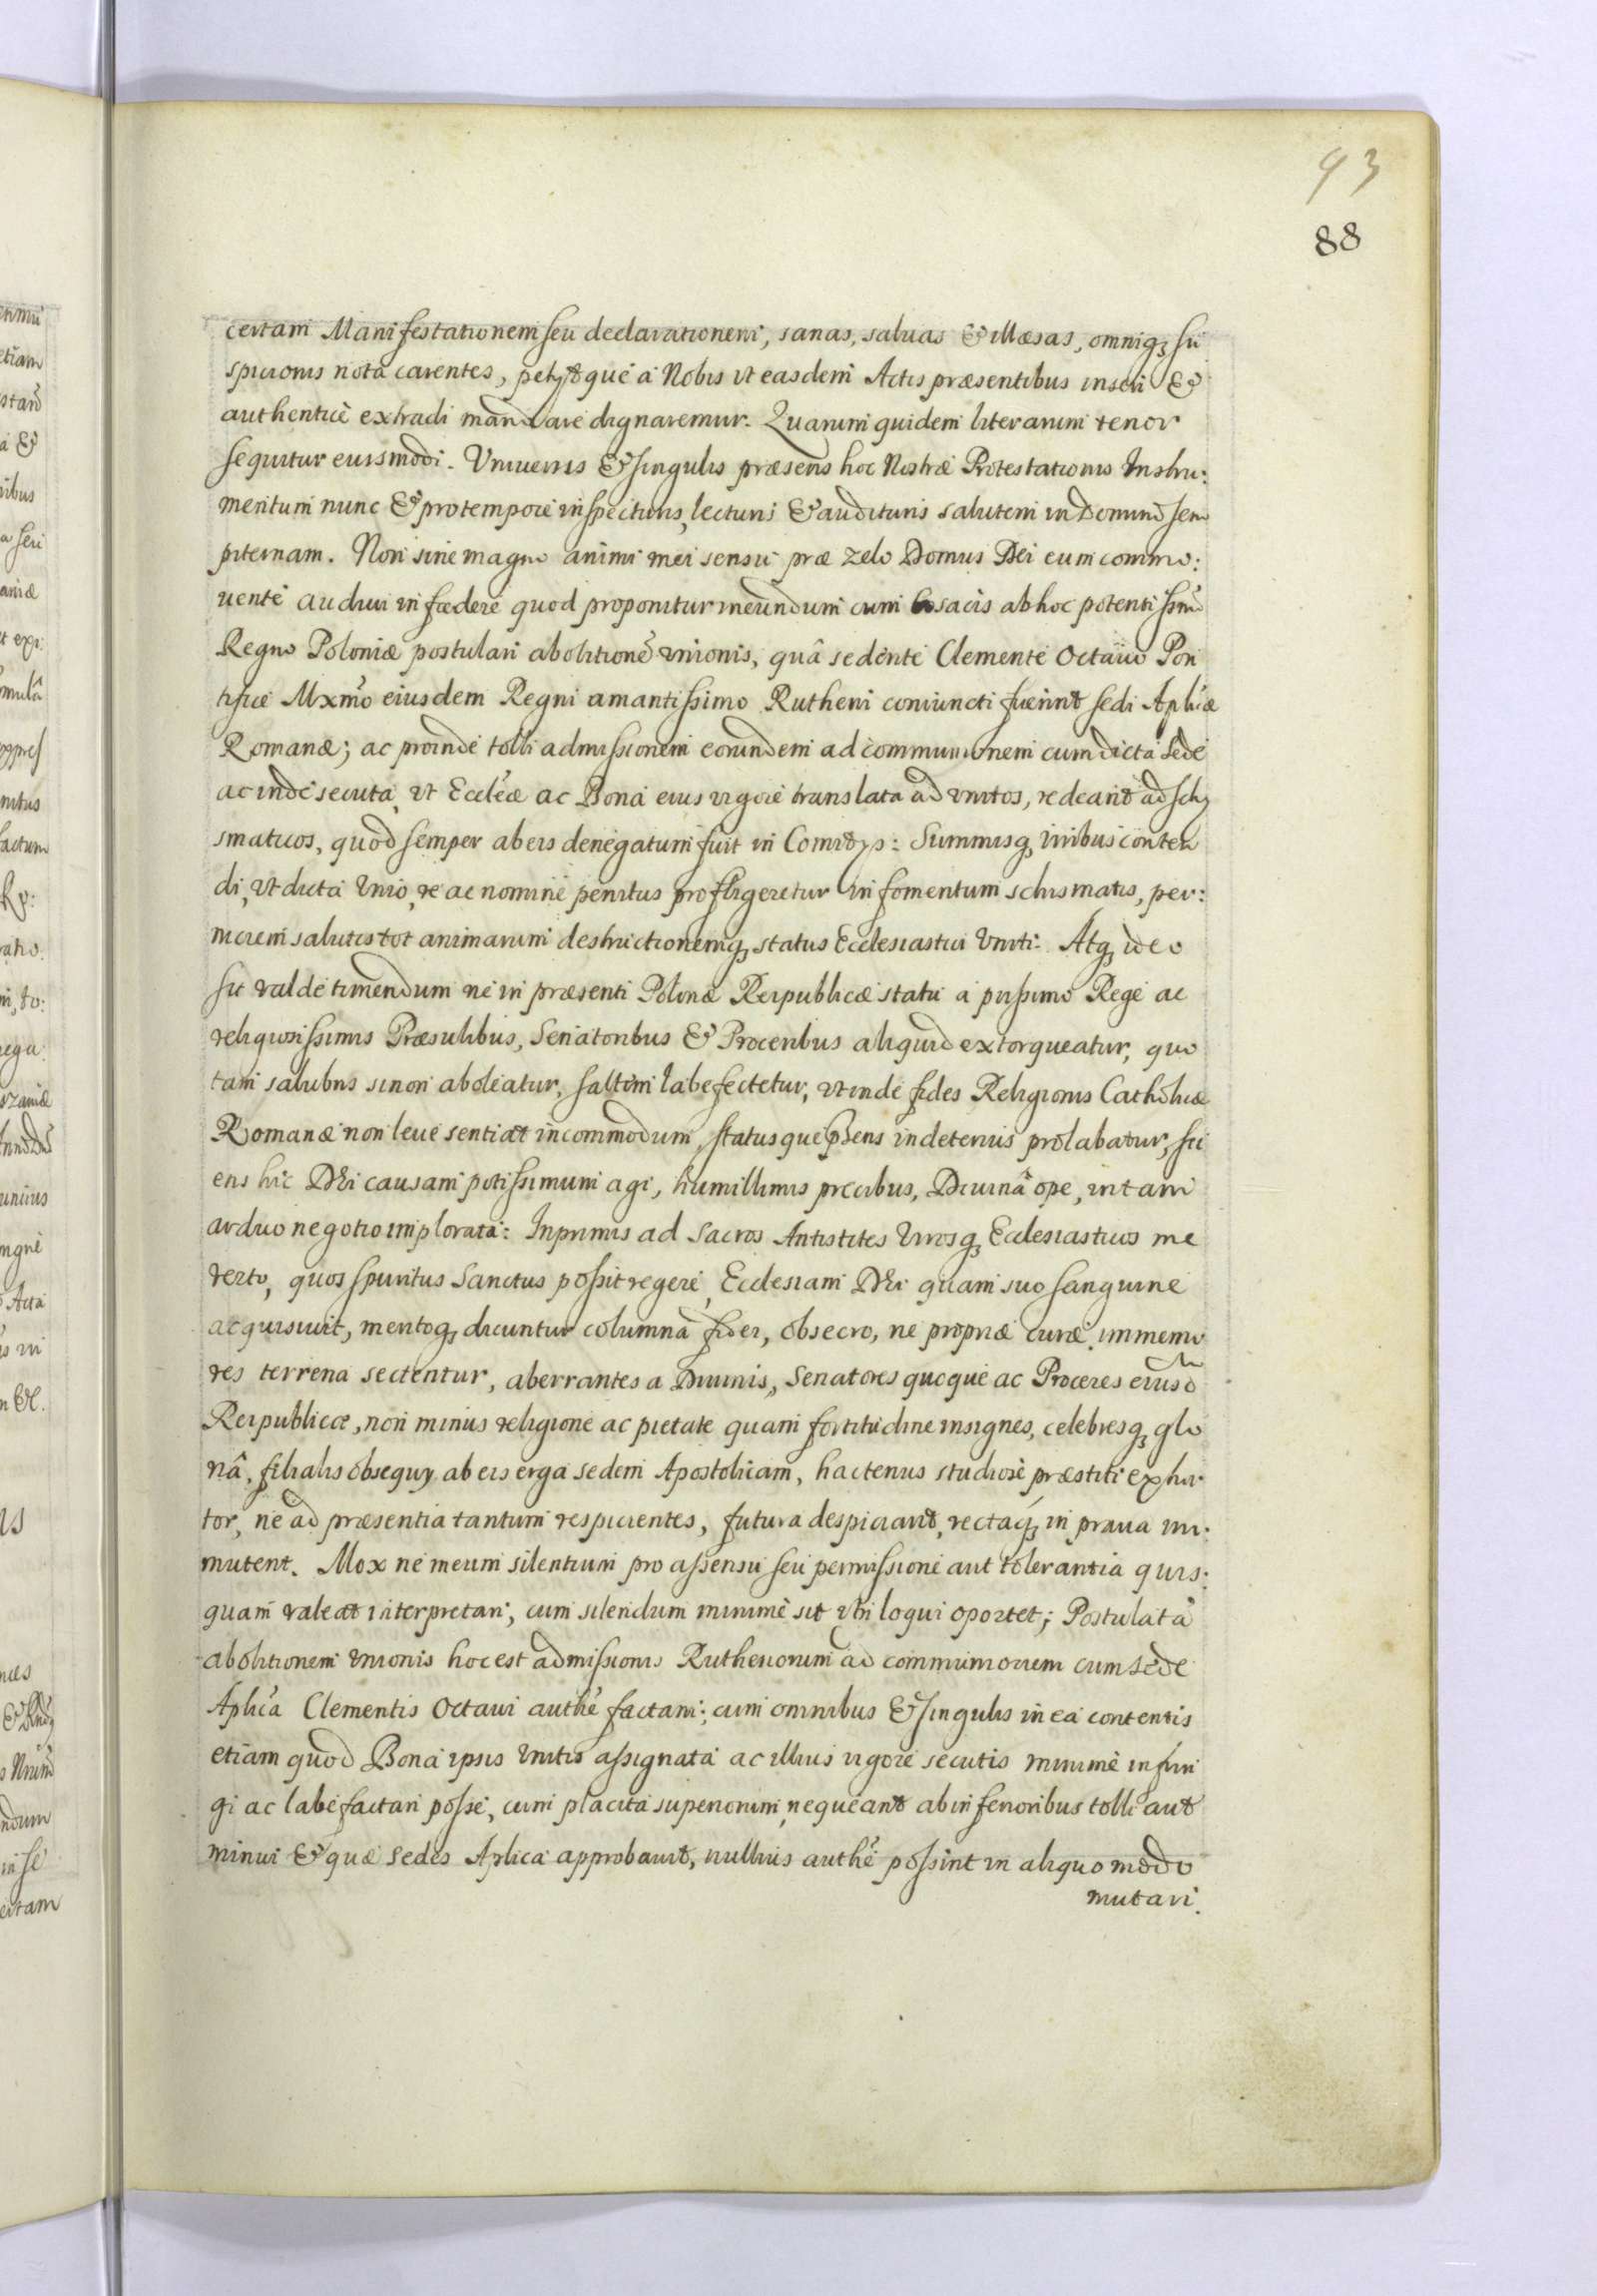 93
88
certam Manifestationem seu declarationem, sanas, saluas & illæsas, omniq; su
spicionis nota carentes, petijtque á Nobis vt easdem Actis præsentibus inseri &
authenticè extradi mandare dignaremur. Quarum quidem literarum tenor
sequitur eiusmodi. Vniuersis & singulis præsens hoc Nostræ Protestationis Instru:
mentum nunc & pro tempore inspecturis, lecturis & audituris salutem in Domino sem
piternam. Non sine magno animi mei sensu præ zelo Domus Dei eum commo:
uente audiui in fœdere quod proponitur ineundum cum Cosacis ab hoc potentissimo
Regno Poloniæ postulari abolitionē vnionis, quâ sedente Clemente Octauo Pon
tifice Mxmo eiusdem Regni amantissimo Rutheni coniuncti fuerint sedi Aplicæ
Romanæ; ac proinde tolli admissionem eorundem ad communionem cum dicta Sede
ac inde secuta, vt Eccleæ ac Bona eius vigore translata ad vnitos, redeant ad schy
smaticos, quod semper ab eis denegatum fuit in Comitijs: Summisq; viribus conten
di, vt dicta Vnio, re ac nomine penitus profligeretur in fomentum schismatis, per:
niciem salutis tot animarum destructionemq; status Ecclesiastici Vniti: Atq; ideo
sit valde timendum ne in præsenti Polonæ Reipublicæ statu á pijssimo Rege ac
religiosissimis Præsulibus, Senatoribus & Proceribus aliquid extorqueatur, quo
tam salubris si non aboleatur, saltim labefectetur, vt inde fides Religionis Catholicæ
Romanæ non leue sentiat incommodum, statusque pns in deterius prolabatur, sci
ens hic Dei causam potissimum agi, humillimis precibus, Diuinâ ope, in tam
arduo negotio implorata: Inprimis ad Sacros Antistites Virosq; Ecclesiasticos me
verto, quos spiritus Sanctus possit regere, Ecclesiam Dei quam suo sanguine
acquisiuit, meritoq; dicuntur columna fidei, obsecro, ne propriæ curæ immemo
res terrena sectentur, aberrantes a Diuinis, Senatores quoque ac Proceres eiusd
Reipublicæ, non minus religione ac pietate quam fortitudine insignes, celebresq; glo
riâ, filialis obsequij ab eis erga sedem Apostolicam, hactenus studiosè præstiti exhor
tor, ne ad præsentia tantum respicientes, futura despiciant, rectaq; in praua im:
mutent. Mox ne meum silentium pro assensu seu permissione aut tolerantia quis:
quam valeat interpretari, cum silendum minimè sit vbi loqui oportet; Postulatâ
abolitionem vnionis hoc est admissionis Ruthenorum ad communionem cum Sede
Aplica Clementis Octaui authe factam; cum omnibus & singulis in ea contentis
etiam quod Bona ipsis Vnitis assignata ac illius vigore secutis minimè infrin
gi ac labefactari posse, cum placita superiorum, nequeant ab inferioribus tolli aut
minui & quæ sedes Aplica approbauit, nullius authe possint in aliquo modo
mutari.